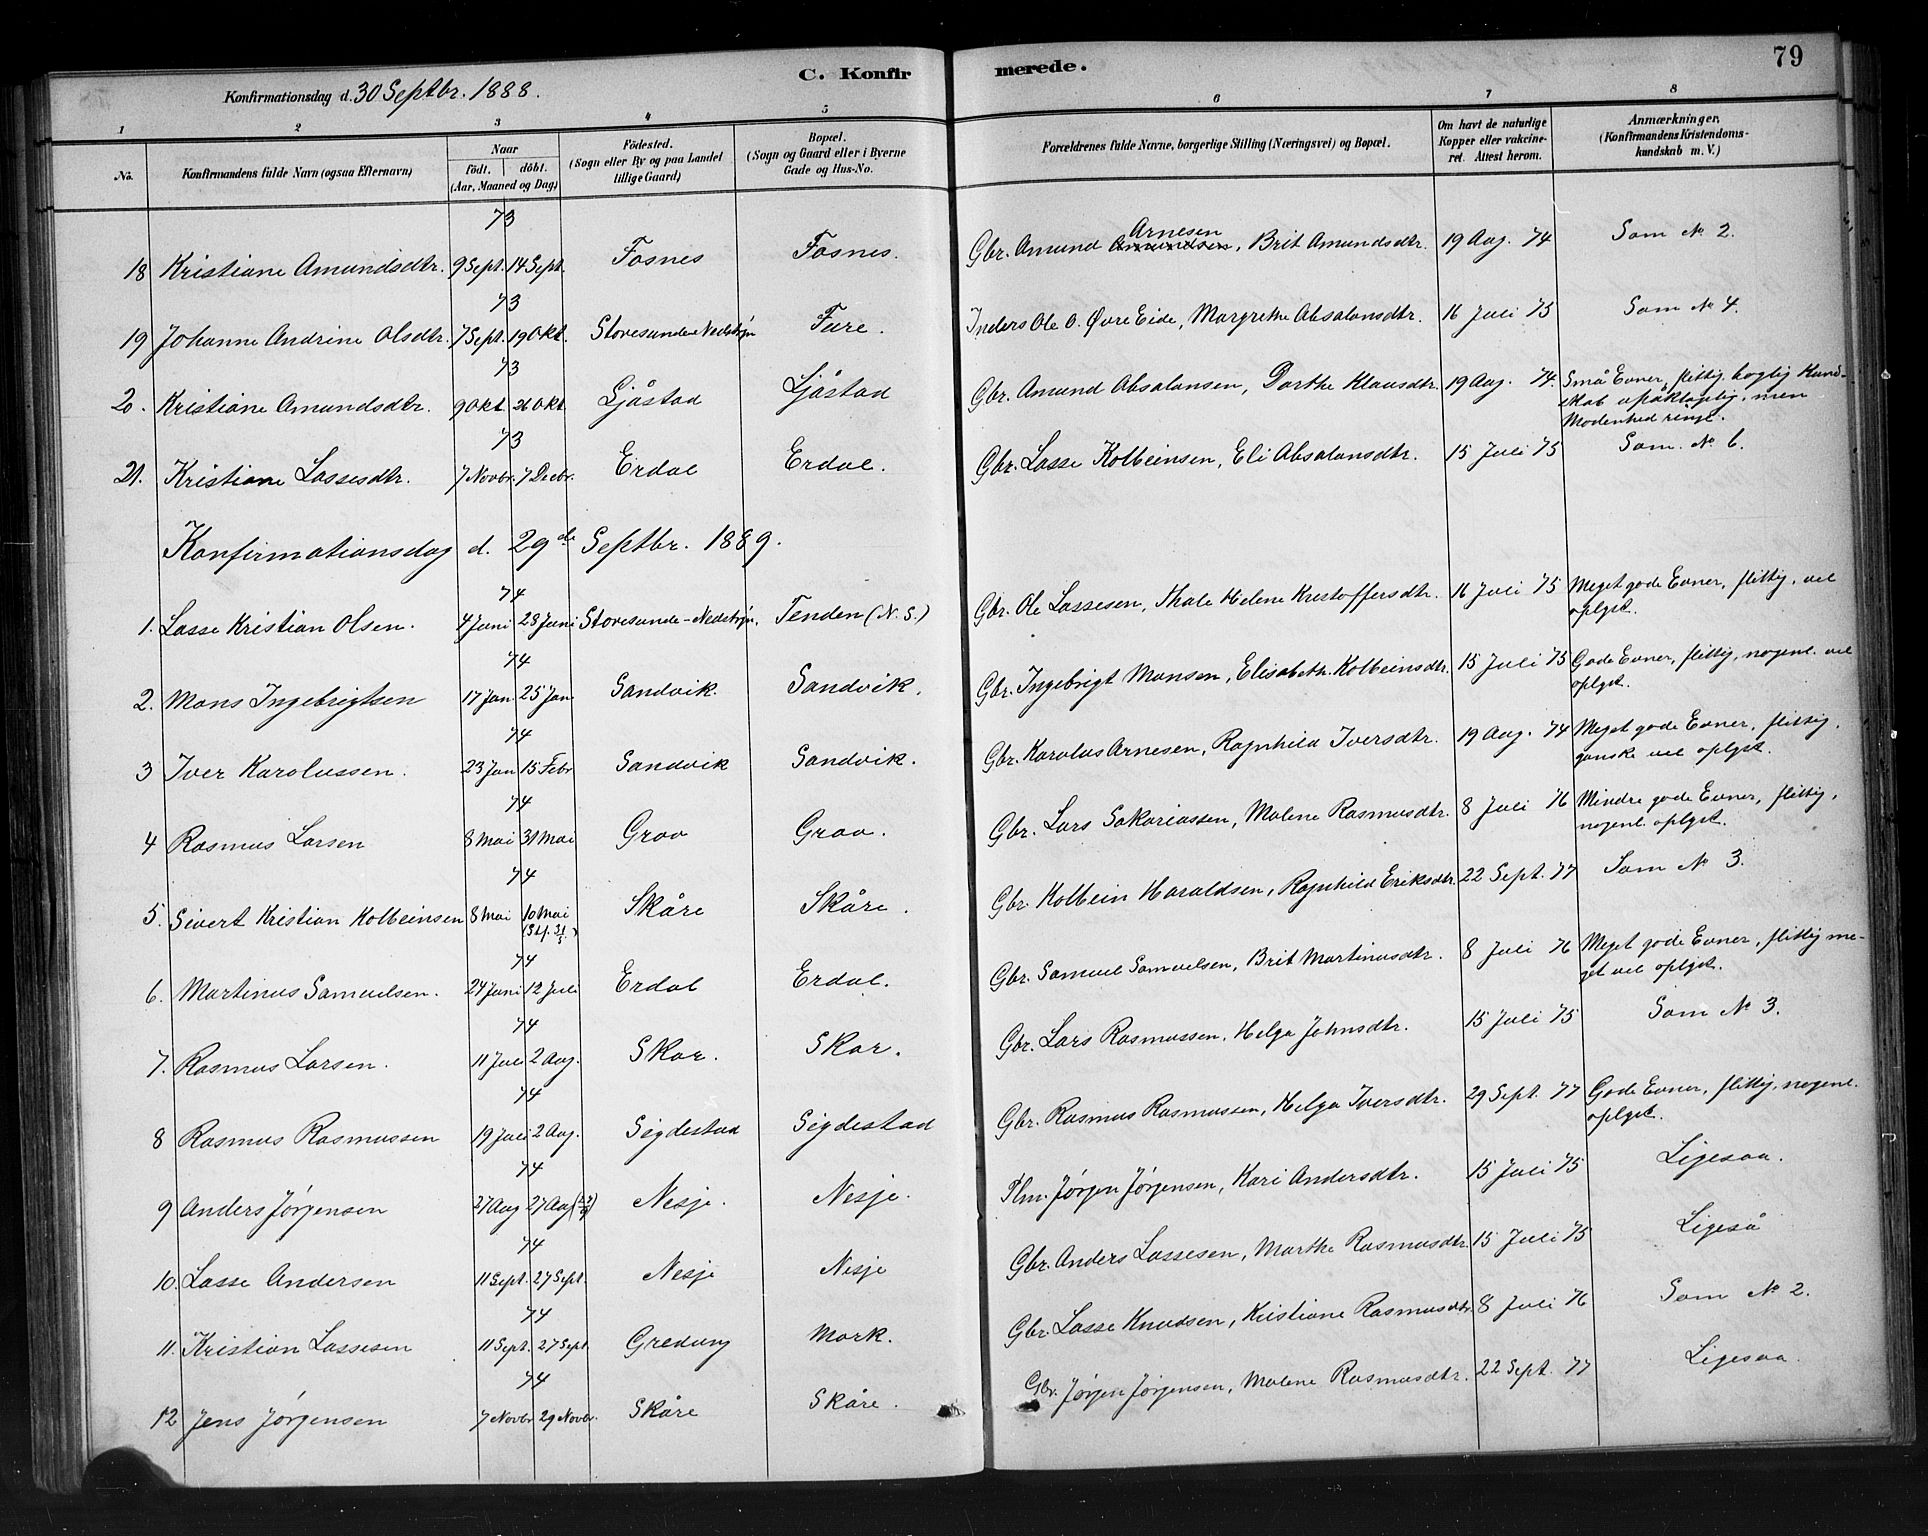 79
C. Konfirmerede.
Konfirmationsdag d. 30 Septbr. 1888.
1 2 3 4 5 6 7 8
No. Konfirmandens fulde Navn (ogsaa Efternavn) Naar födt. döbt. (Aar, Maaned og Dag) Födested. (Sogn eller By og paa Landet tillige Gaard) Bopæl. (Sogn og Gaard eller i Byerne Gade og Hus-No. Forældrenes fulde Navne, borgerlige Stilling (Næringsvei) og Bopæl. Om havt de naturlige Kopper eller vakcineret. Attest herom. Anmærkninger. (Konfirmandens Kristendomskundskab m. V.)
73
18 Kristiane Amundsdtr. 9 Sept. 14 Sept. Fosnes Fosnes. Gbr. Amund Amundsen Arnesen, Brit Amundsdtr. 19 Aug. 74 Som No 2.
73
19 Johanne Andrine Olsdtr. 7 Sept. 19 Okt. Storesunde Nedstryn Fure. Inders Ole O. Øvre Eide, Margrethe Absalonsdtr. 16 Juli 75 Som No 4.
73
20. Kristiane Amundsdtr. 9 Okt. 26 Okt. Ljåstad Ljåstad Gbr. Amund Absalonsen, Dorthe Klausdtr. 19 Aug. 74. Små Evner, flittig, boglig Kund-
skab upåklagelig, men
Modenhed ringe.
73
21. Kristiane Lassesdtr. 7 Novbr. 7 Decbr. Erdal Erdal. Gbr. Lasse Kolbeinsen, Eli Absalonsdtr. 15 Juli 75 Som No 6.
Konfirmationsdag d. 29de Septbr. 1889.
74
1. Lasse Kristian Olsen. 4 Juni 28 Juni Storesunde-Nedstryn. Tenden (N. S.) Gbr. Ole Lassesen, Thale Helene Kristoffersdtr. 16 Juli 75 Meget gode Evner, flittig, vel
oplyst.
74
2. Mons Ingebrigtsen 17 Jan. 25 Jan. Sandvik. Sandvik. Gbr. Ingebrigt Monsen, Elisabeth Kolbeinsdtr. 15 Juli 75 Gode Evner, flittig, nogenl. vel
oplyst.
74
3 Iver Karolussen. 23 Jan 15 Febr Sandvik Sandvik. Gbr. Karolus Arnesen, Ragnhild Iversdtr. 19 Aug. 74 Meget gode Evner, flittig,
ganske vel oplyst.
74
4 Rasmus Larsen 8 Mai 31 Mai Grov Grov. Gbr. Lars Sakariassen, Malene Rasmusdtr. 8 Juli 76 Mindre gode Evner, flittig,
nogenl. oplyst.
74
5. Sivert Kristian Kolbeinsen 8 Mai 10 Mai (St. 31/5) Skåre Skåre. Gbr. Kolbein Haraldsen, Ragnhild Eriksdtr. 22 Sept. 77 Som No 3.
74
6. Martinus Samuelsen. 24 Juni 12 Juli Erdal Erdal. Gbr. Samuel Samuelsen, Brit Martinusdtr. 8 Juli 76 Meget gode Evner, flittig me-
get vel oplyst.
74
7. Rasmus Larsen. 11 Juli 2 Aug. Skar. Skar. Gbr. Lars Rasmussen, Helga Johnsdtr. 15 Juli 75 Som No 3.
74
8 Rasmus Rasmussen 19 Juli 2 Aug. Sigdestad Sigdestad Gbr. Rasmus Rasmussen, Helga Iversdtr. 29 Sept. 77 Gode Evner, flittig, nogenl.
oplyst.
74
9 Anders Jørgensen 27 Aug 27 Aug Nesje. Nesje. Plm. Jørgen Jørgensen, Kari Andersdtr. 15 Juli 75 Ligesaa.
74
10. Lasse Andersen 11 Sept. 27 Sept. Nesje Nesje Gbr. Anders Lassesen, Marthe Rasmusdtr. 15 Juli 75 Ligeså
74
11. Kristian Lassesen 11 Sept. 27 Sept Gredung Mork. Gbr. Lasse Knudsen, Kristiane Rasmusdtr. 8 Juli 76 Som No 2.
74
12 Jens Jørgensen 7 Novbr. 29 Novbr. Skåre Skåre. Gbr. Jørgen Jørgensen, Malene Rasmusdtr. 22 Sept. 77 Ligesaa.